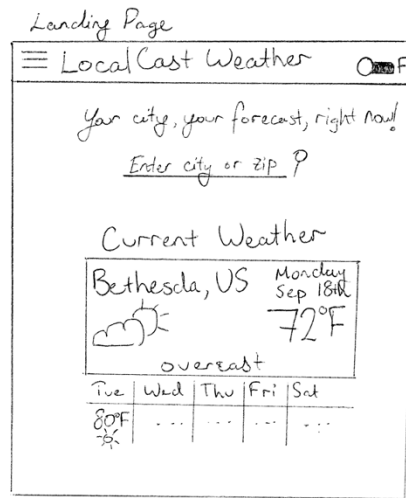 Landing Page
LocalCast Weather F
Your city, your forecast, right now!
Enter city or zip
Current Weather
Bethesda, US Monday
Sep 18th
72°F
overcast
Tue Wed Thu Fri Sat
80°F ... ... ... ...